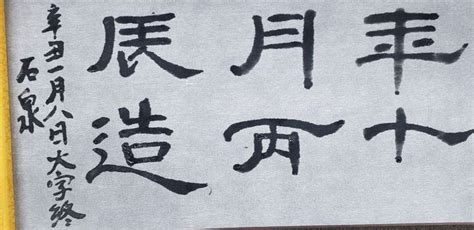 年十
月丙
辰造
辛丑一月八日大字終
石泉